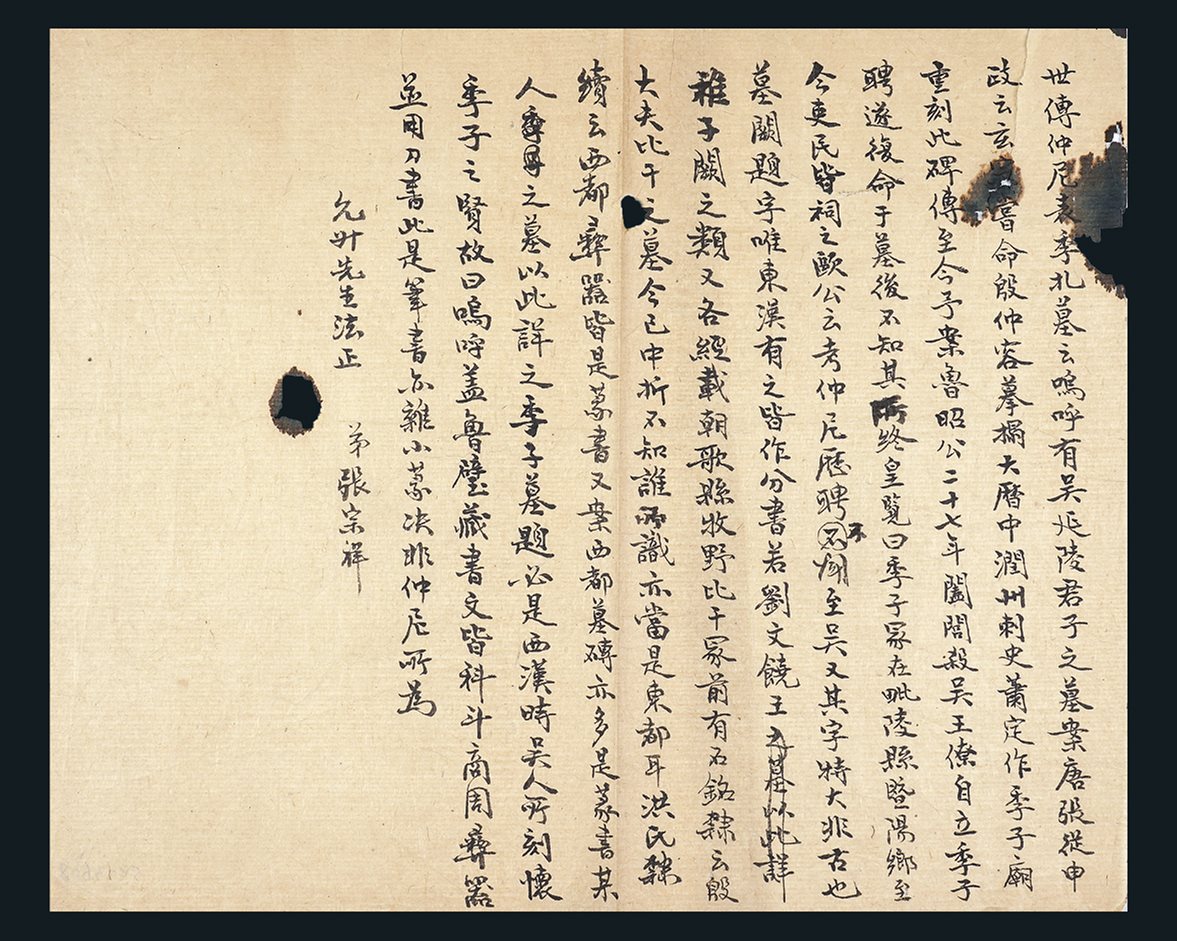 世傳仲尼表季札墓云嗚呼有吳延陵君子之墓案唐張從申
政云玄嘗命殷仲容摹搨大曆中潤州刺史蕭定作季子廟
重刻此碑傳至今予案魯昭公二十七年闔閭殺吳王僚自立季子
聘遊復命于墓後不知其所終皇覽曰季子冢在毗陵縣暨陽鄉至
今吏民皆祠之歐公云考仲尼歷聘不聞至吳又其字特大非古也
墓闕題字唯東漢有之皆作分書若劉文饒王之墓以此詳
稚子闕之類又各經載朝歌縣牧野比干冢前有石銘隸云殷
大夫比干之墓今已中折不知誰所識亦當是東都耳洪氏隸
續云西都彝器皆是篆書又案西都墓磚亦多是篆書某
人之墓以此詳之季子墓題必是西漢時吳人所刻懷
季子之賢故曰嗚呼盖魯壁藏書文皆科斗商周彝器
並用刀書此是筆書亦雜小篆决非仲尼所為
允卅先生法正
弟張宗祥